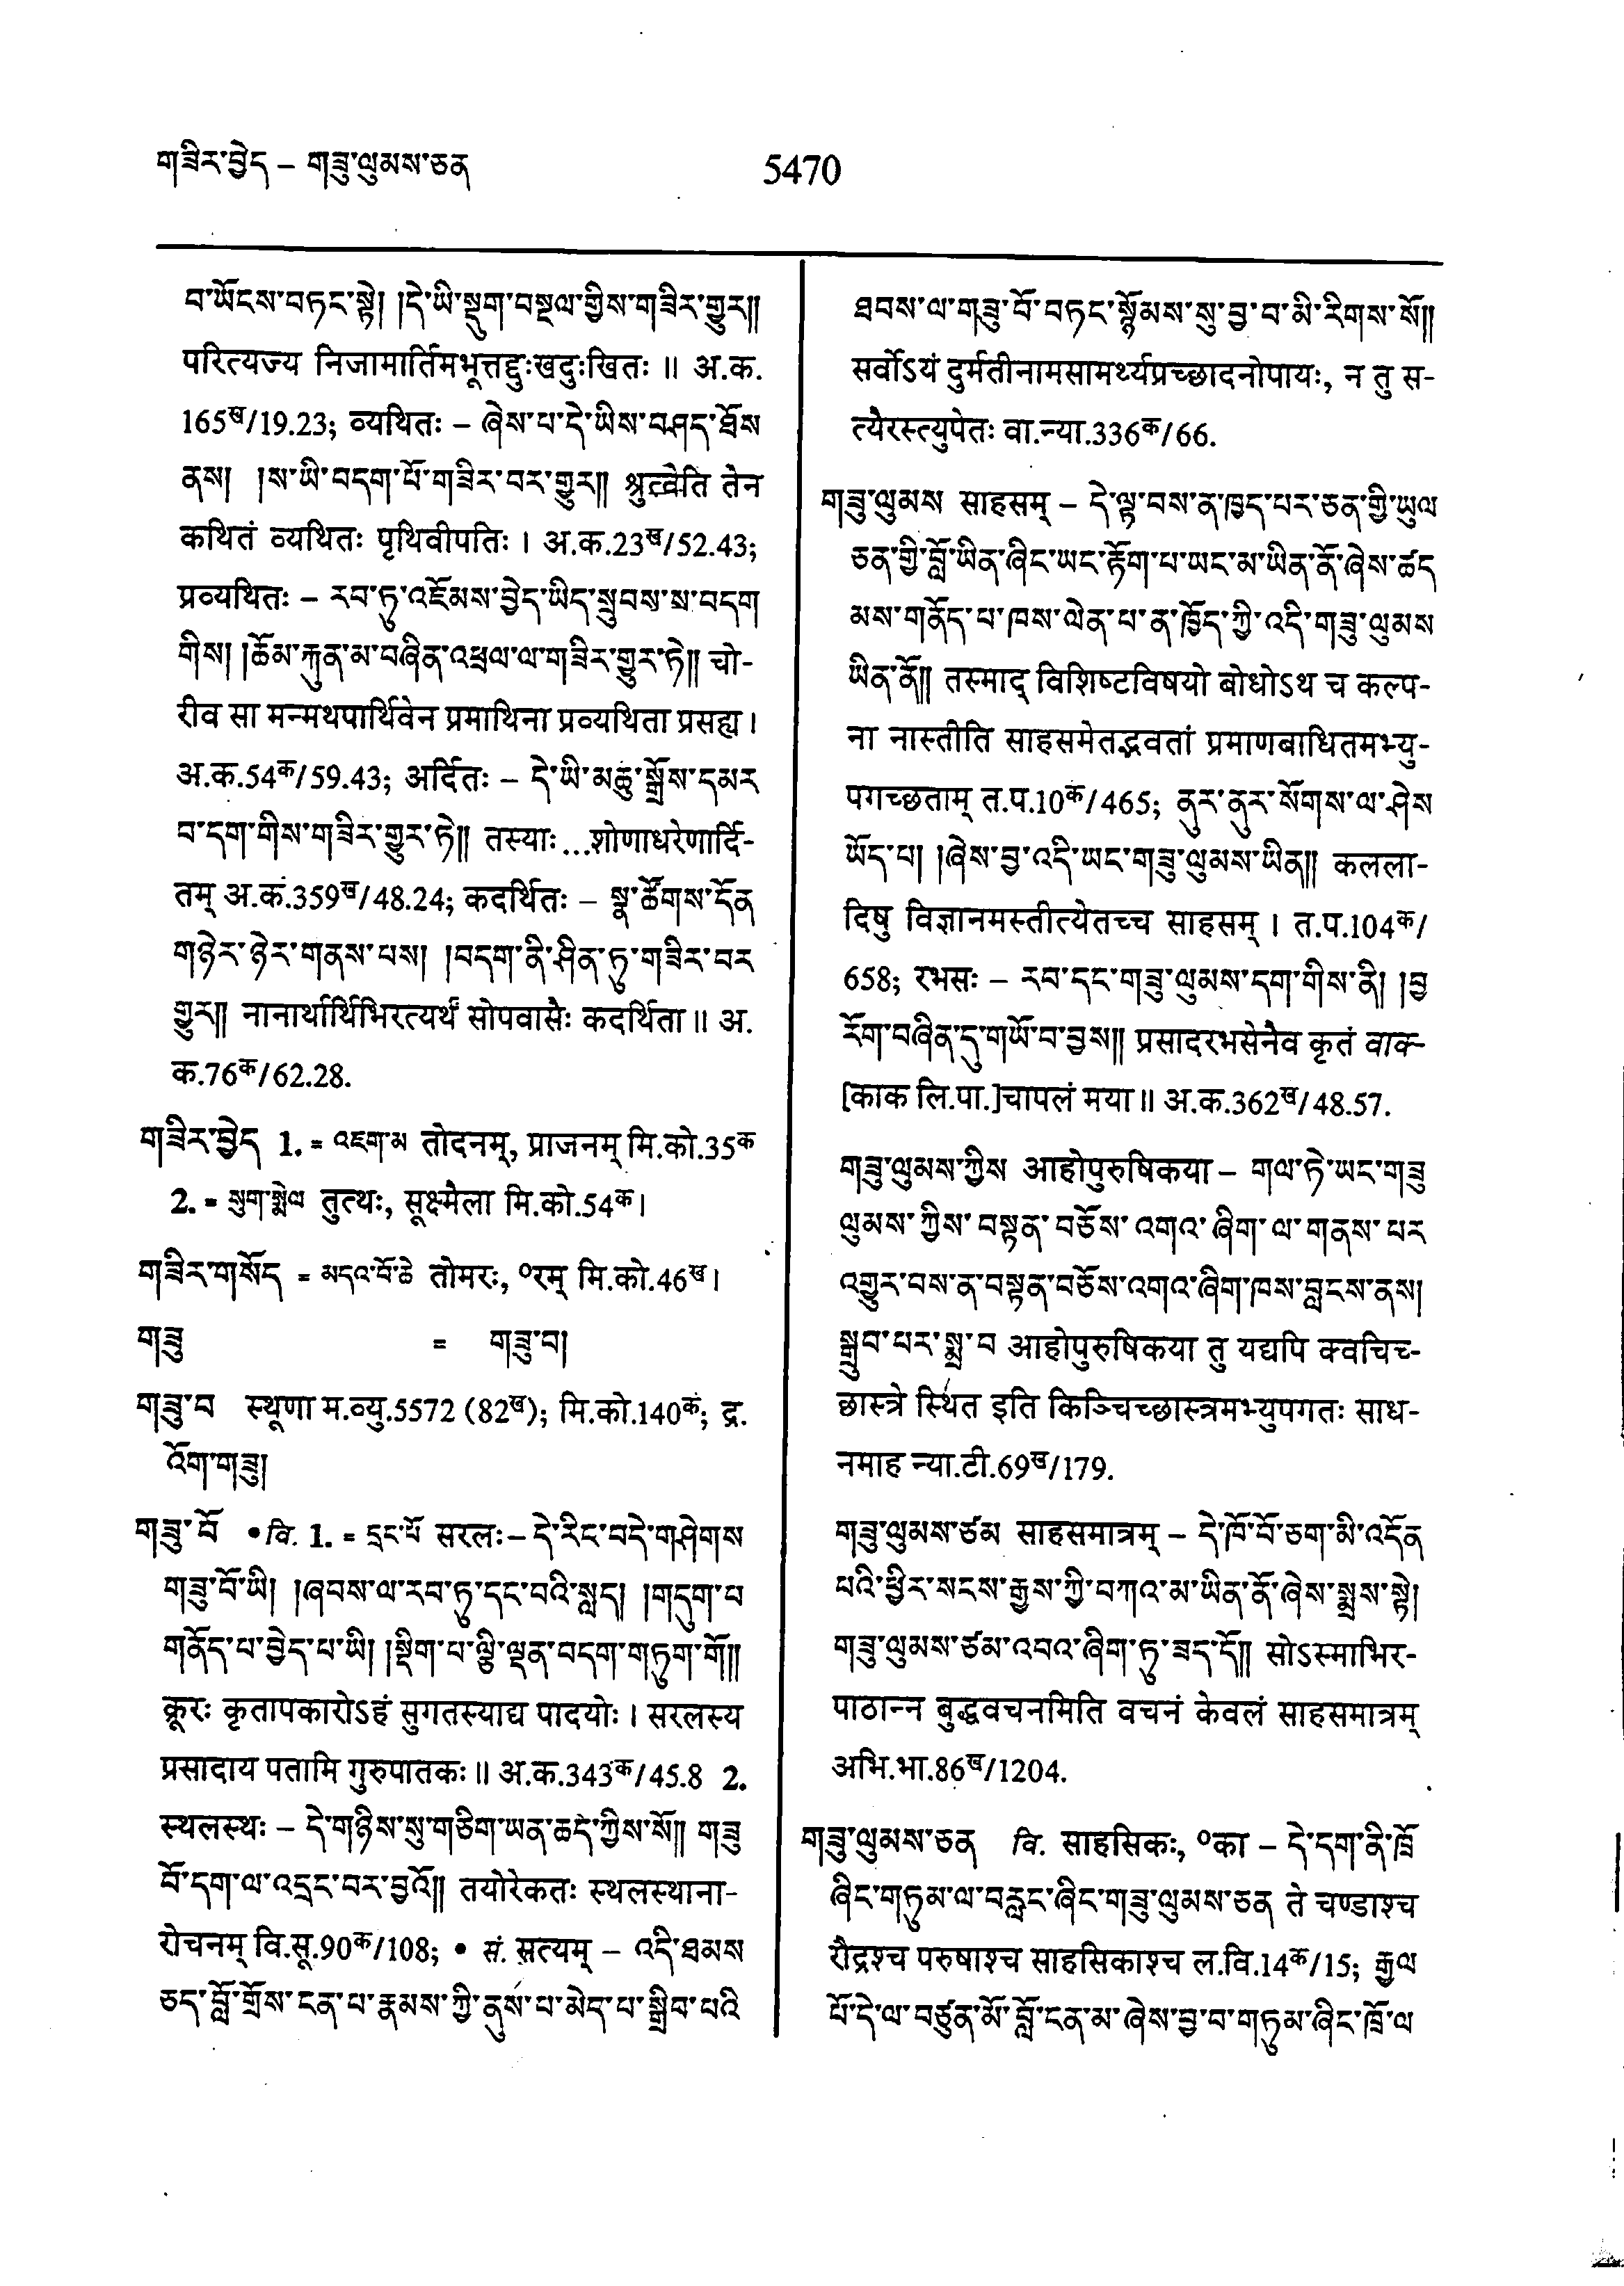 གཟིར་བྱེད – གཟུ་ལུམས་ཅན
5470
བ་ཡོངས་བཏང་སྟེ། །དེ་ཡི་སྡུག་བསྔལ་གྱིས་གཟིར་གྱུར༎
परित्यज्य निजामार्तिमभूत्तद्दुःखदुःखितः ॥ अ.क.
165ख/19.23; व्यथितः – ཞེས་པ་དེ་ཡིས་བཤད་ཐོས
ནས། །ས་ཡི་བདག་པོ་གཟིར་བར་གྱུར༎ श्रुत्वेति तेन
कथितं व्यथितः पृथिवीपतिः । अ.क.23ख/52.43;
प्रव्यथितः – རབ་ཏུ་འཇོམས་བྱེད་ཡིད་སྲུབས་ས་བདག
གིས། །ཆོམ་རྐུན་མ་བཞིན་འཕྲལ་ལ་གཟིར་གྱུར་ཏེ༎ चो-
रीव सा मन्मथपार्थिवेन प्रमाथिना प्रव्यथिता प्रसह्य ।
अ.क.54क/59.43; अर्दितः – དེ་ཡི་མཆུ་སྒྲོས་དམར
བ་དག་གིས་གཟིར་གྱུར་ཏེ༎ तस्याः...शोणाधरेणार्दि-
तम् अ.क.359ख/48.24; कदर्थितः – སྣ་ཚོགས་དོན
གཉེར་ཉེར་གནས་པས། །བདག་ནི་ཤིན་ཏུ་གཟིར་བར
གྱུར༎ नानार्थार्थिभिरत्यर्थं सोपवासैः कदर्थिता ॥ अ.
क.76क/62.28.
གཟིར་བྱེད 1. = འཇག་མ तोदनम्, प्राजनम् मि.को.35क
2. = སུག་སྨེལ तुत्थः, सूक्ष्मैला मि.को.54क।
གཟིར་གསོད = མདའ་བོ་ཆེ तोमरः, ०रम् मि.को.46ख।
གཟུ = གཟུ་བ།
གཟུ་བ स्थूणा म.व्यु.5572 (82ख); मि.को.140क; द्र.
འོག་གཟུ།
གཟུ་བོ • वि. 1. = དྲང་པོ सरलः – དེ་རིང་བདེ་གཤེགས
གཟུ་བོ་ཡི། །ཞབས་ལ་རབ་ཏུ་དང་བའི་སླད། །གདུག་པ
གནོད་པ་བྱེད་པ་ཡི། །སྡིག་པ་ལྕི་ལྡན་བདག་གཏུག་གོ༎
क्रूरः कृतापकारोऽहं सुगतस्याद्य पादयोः । सरलस्य
प्रसादाय पतामि गुरुपातकः ॥ अ.क.343क/45.8 2.
स्थलस्थः – དེ་གཉིས་སུ་གཅིག་ཡན་ཆད་ཀྱིས་སོ༎ གཟུ
བོ་དག་ལ་འདྲང་བར་བྱའོ༎ तयोरेकतः स्थलस्थाना-
रोचनम् वि.सू.90क/108; • सं. सत्यम् – འདི་ཐམས
ཅད་བློ་གྲོས་ངན་པ་རྣམས་ཀྱི་ནུས་པ་མེད་པ་སྒྲིབ་པའི
ཐབས་ལ་གཟུ་བོ་བཏང་སྙོམས་སུ་བྱ་བ་མི་རིགས་སོ༎
सर्वोऽयं दुर्मतीनामसामर्थ्यप्रच्छादनोपायः, न तु स-
त्यैरस्त्युपेतः वा.न्या.336क/66.
གཟུ་ལུམས साहसम् – དེ་ལྟ་བས་ན་ཁྱད་པར་ཅན་གྱི་ཡུལ
ཅན་གྱི་བློ་ཡིན་ཞིང་ཡང་རྟོག་པ་ཡང་མ་ཡིན་ནོ་ཞེས་ཚད
མས་གནོད་པ་ཁས་ལེན་པ་ན་ཁྱོད་ཀྱི་འདི་གཟུ་ལུམས
ཡིན་ནོ༎ तस्माद् विशिष्टविषयो बोधोऽथ च कल्प-
ना नास्तीति साहसमेतद्भवतां प्रमाणबाधितमभ्यु-
पगच्छताम् त.प.10क/465; ནུར་ནུར་སོགས་ལ་ཤེས
ཡོད་པ། །ཞེས་བྱ་འདི་ཡང་གཟུ་ལུམས་ཡིན༎ कलला-
दिषु विज्ञानमस्तीत्येतच्च साहसम् । त.प.104क/
658; रभसः – རབ་དང་གཟུ་ལུམས་དག་གིས་ནི། །བྱ
རོག་བཞིན་དུ་གཡོ་བ་བྱས༎ प्रसादरभसेनैव कृतं वाक्-
[काक लि.पा.]चापलं मया ॥ अ.क.362ख/48.57.
གཟུ་ལུམས་ཀྱིས आहोपुरुषिकया – གལ་ཏེ་ཡང་གཟུ
ལུམས་ཀྱིས་བསྟན་བཅོས་འགའ་ཞིག་ལ་གནས་པར
འགྱུར་བས་ན་བསྟན་བཅོས་འགའ་ཞིག་ཁས་བླངས་ནས།
སྒྲུབ་པར་སྨྲ་བ आहोपुरुषिकया तु यद्यपि क्वचिच्-
छास्त्रे स्थित इति किञ्चिच्छास्त्रमभ्युपगतः साध-
नमाह न्या.टी.69ख/179.
གཟུ་ལུམས་ཙམ साहसमात्रम् – དེ་ཁོ་བོ་ཅག་མི་འདོན
པའི་ཕྱིར་སངས་རྒྱས་ཀྱི་བཀའ་མ་ཡིན་ནོ་ཞེས་སྨྲས་སྟེ།
གཟུ་ལུམས་ཙམ་འབའ་ཞིག་ཏུ་ཟད་དོ༎ सोऽस्माभिर-
पाठान्न बुद्धवचनमिति वचनं केवलं साहसमात्रम्
अभि.भा.86ख/1204.
གཟུ་ལུམས་ཅན वि. साहसिकः, ०का – དེ་དག་ནི་ཁྲོ
ཞིང་གཏུམ་ལ་བརླང་ཞིང་གཟུ་ལུམས་ཅན ते चण्डाश्च
रौद्रश्च परुषाश्च साहसिकाश्च ल.वि.14क/15; རྒྱལ
པོ་དེ་ལ་བཙུན་མོ་བློ་ངན་མ་ཞེས་བྱ་བ་གཏུམ་ཞིང་ཁྲོ་ལ